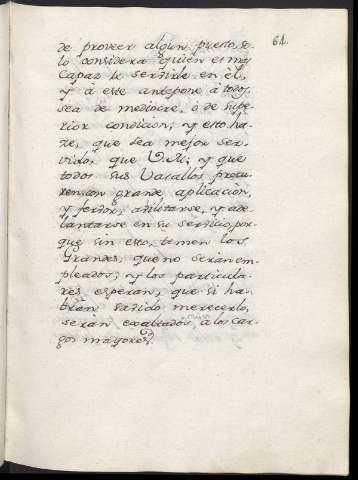 61.
de proveer algun puesto, so-
lo considera quien es mas
Capaz de servirle en èl,
y a este antepone à todos,
sea de mediocre, ò de supe-
rior condicion; y esto ha-
ze, que sea mejor ser-
vido, que V.M; y que
todos sus Vasallos procu-
ren con grande aplicacion,
y fervor, avilitarse, y ade-
lantarse en su servicio, por-
que sin esto, temen los
Grandes, que no seràn em-
pleados; y los particula-
res esperan, que si ha-
bràn savido merecerlo,
seràn exaltados à los car-
gos mayores.